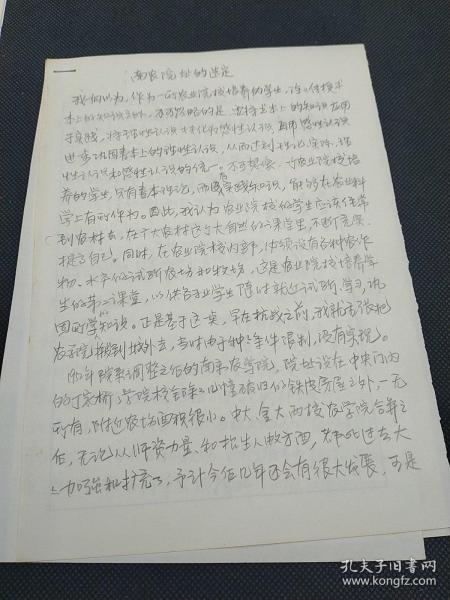 南农院址的选定
我们认为,作为一所农业院校培养的学生,除了传授书
本上的知识之外,不可忽略的是坚持书本上的知识应用
于实践,将理性认识转化为感性认识,再用感性认识
进步巩固书本上的理性认识,从而达到理论实际,理
性认识和感性认识的统一。不可想像,一所农业院校培
养的学生,只有书本理论,而缺实践知识,能够在农业科
学上有所作为。因此,我认为农业院校的学生应该经常
到农村去,在广大农村这个大自然的课堂里,不断充实
提高自己,同时,在农业院校内部,必须设有各种农作
物、水产的试验农场和牧场,这是农业院校培养学
生的第二课堂,以供各专业学生随时就近试验、学习,巩
固所学知识。正是基于这一点,早在抗战之前,我就主张把
农学院搬到城外去,当时由于种种条件限制,没有实现。
1952年院系调整之后的南京农学院,院址设在中央门内
的丁家桥,学院校舍除了幢破旧的铁皮房屋之外,一无
所有,附近农场面积很小。中大、金大两校农学院合并之
后,无论从师资力量、和招生人数方面,都比过去大
大加强和扩充了,予计今后几年还会有很大发展,可是
孔夫子旧书网
www.kongfz.com